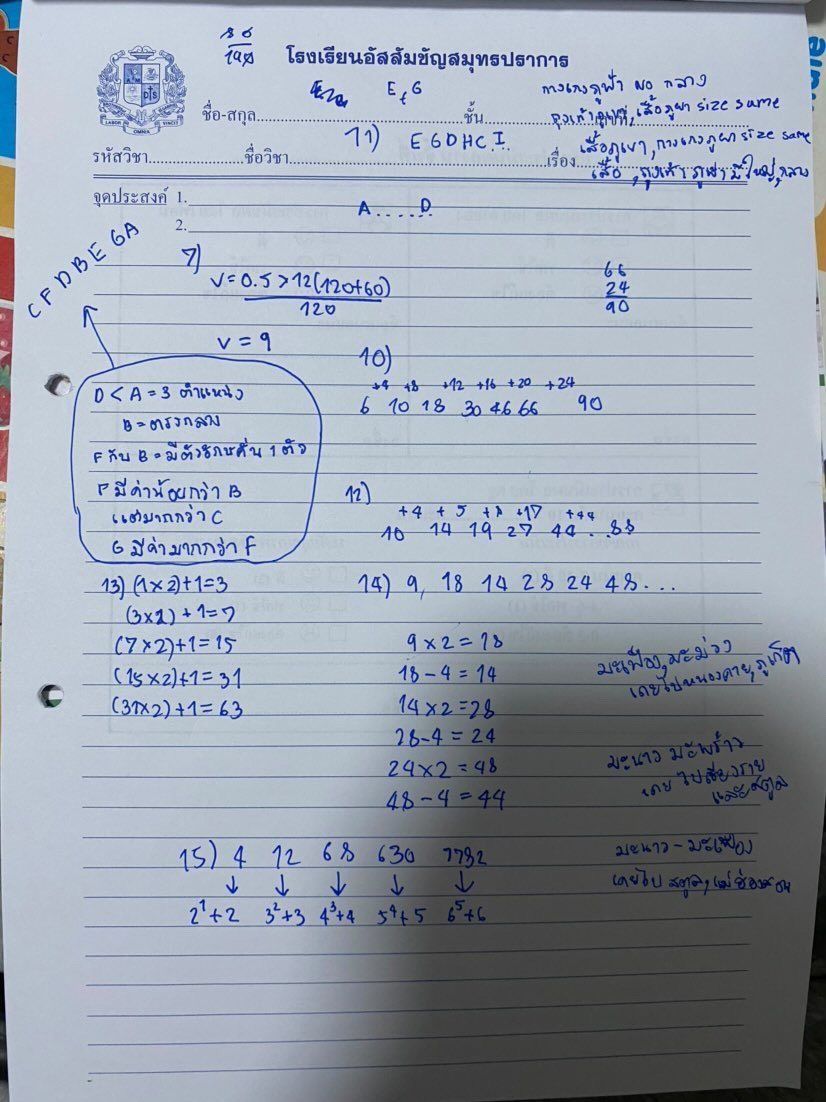 โรงเรียนอัสสัมชัญสมุทรปราการ
LABOR OMNIA VINCIT
E, G
กางเกงภูฟ้า NO กลาง
ชื่อ-สกุล
ชั้น
เสื้อภูผา size same
11) E G D H C I.
เสื้อภูเขา, กางเกงภูผา size same
รหัสวิชา
ชื่อวิชา
เรื่อง
เสื้อ, ถุงเท้า ภูฟ้า มี ใหญ่, กลาง
จุดประสงค์ 1.
A.....D.
2.
C F D B E G A
7)
V = 0.5 × 12(120+60)
120
66
24
90
V = 9
10)
D < A = 3 ตำแหน่ง
+4 +8 +12 +16 +20 +24
6 10 18 30 46 66 90
B = ตรงกลาง
F กับ B = มีตัวอักษรคั่น 1 ตัว
F มีค่าน้อยกว่า B
แต่มากกว่า C
G มีค่ามากกว่า F
12)
+4 +5 +8 +17 +44
10 14 19 27 44 ...88
13) (1×2)+1=3
(3×2)+1=7
(7×2)+1=15
(15×2)+1=31
(31×2)+1=63
14) 9, 18 14 28 24 48...
9×2=18
18-4=14
14×2=28
28-4=24
24×2=48
48-4=44
มะเฟือง, มะม่วง
เคยไปหนองคาย, ภูเก็ต
มะนาว มะพร้าว
เคยไปเชียงราย
และสตูล
มะนาว - มะเฟือง
เคยไป สตูล, แม่ฮ่องสอน
15) 4 12 68 630 7782
↓ ↓ ↓ ↓ ↓
2¹+2 3²+3 4³+4 5⁴+5 6⁵+6